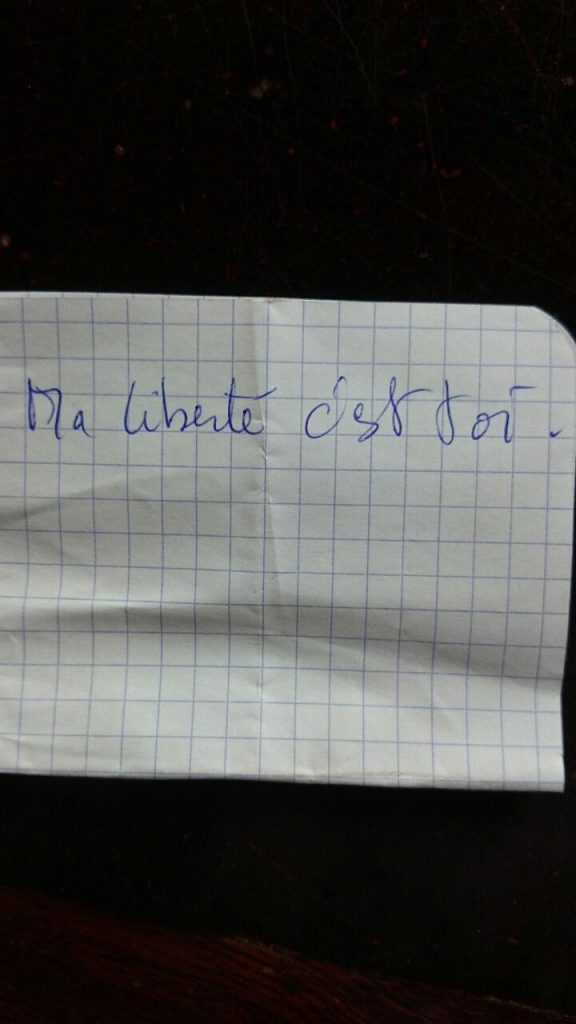 Ma liberté c'est toi.